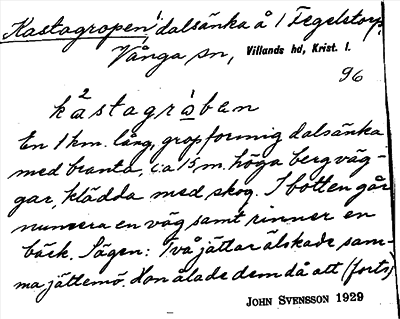 Kastagropen! dalsänka å 1 Fegelstorp,
Vånga sn, Villands hd, Krist. l.
96
kåstagràben
En 1 km. lång, gropformig dalsänka
med branta, c:a 15 m. höga bergväg-
gar, klädda med skog. I botten går
numera en väg samt rinner en
bäck. Sägen: Två jättar älskade sam-
ma jättemö. Hon ålade dem då att (forts)
JOHN SVENSSON 1929